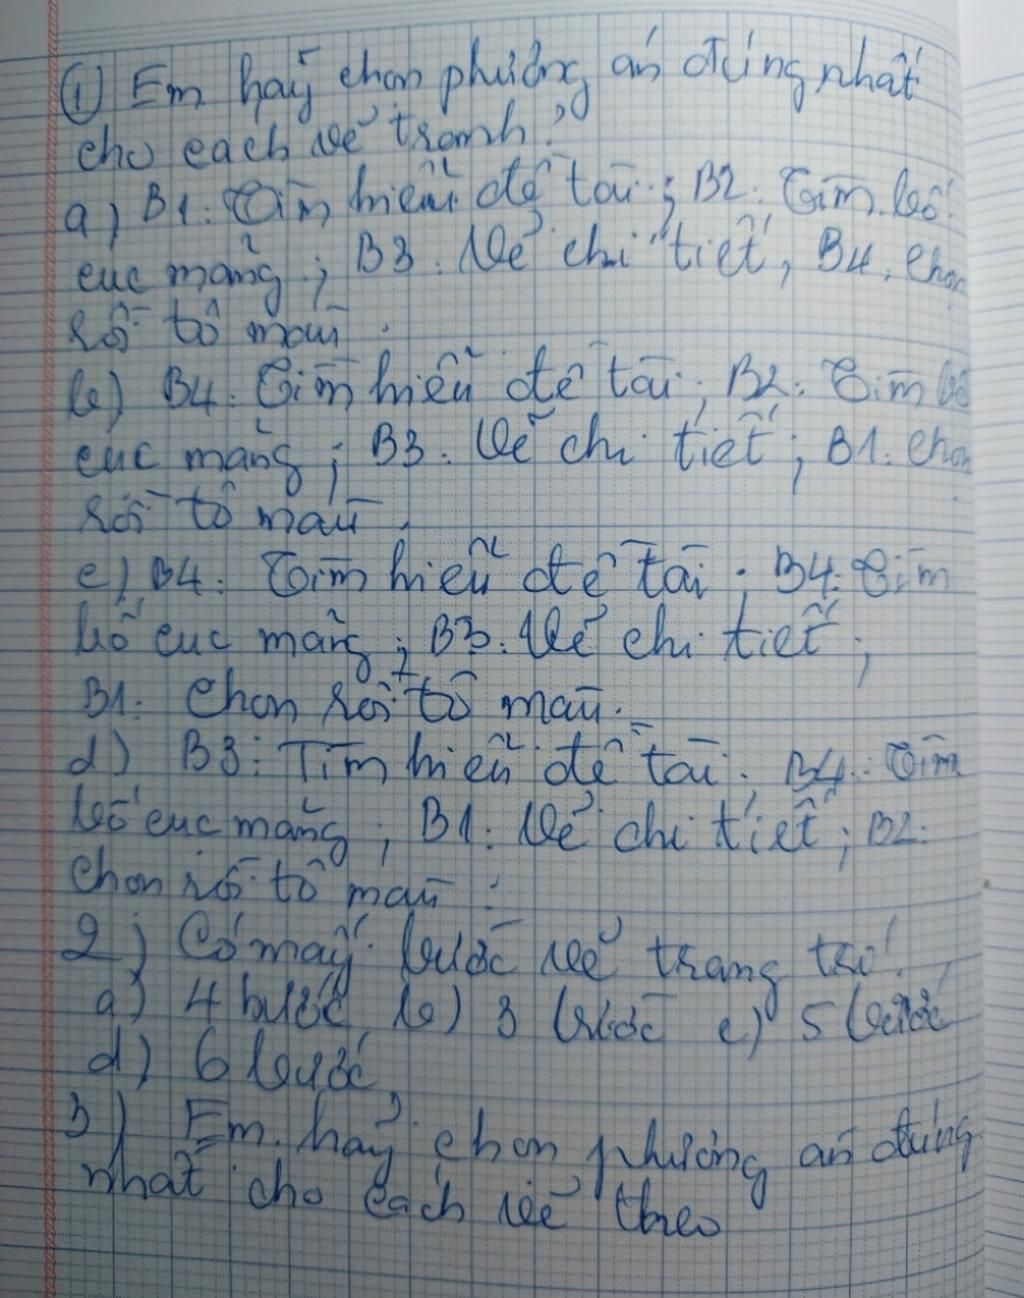 ① Em hãy chọn phương án đúng nhất
cho cách vẽ tranh?
a) B1: Tìm hiểu đề tài; B2: Tìm bố
cục mảng; B3: Vẽ chi tiết, B4: chọn
rồi tô màu.
b) B4: Tìm hiểu đề tài; B2: Tìm bố
cục mảng; B3: Vẽ chi tiết; B1: chọn
rồi tô màu.
c) B4: Tìm hiểu đề tài; B4: Tìm
bố cục mảng; B3: Vẽ chi tiết;
B1: chọn rồi tô màu.
d) B3: Tìm hiểu đề tài; B4: Tìm
bố cục mảng; B1: Vẽ chi tiết; B2:
chọn rồi tô màu:
2) Có mấy bước vẽ trang trí
a) 4 bước b) 3 bước c) 5 bước
d) 6 bước
3) Em hãy chọn phương án đúng
nhất cho cách vẽ theo